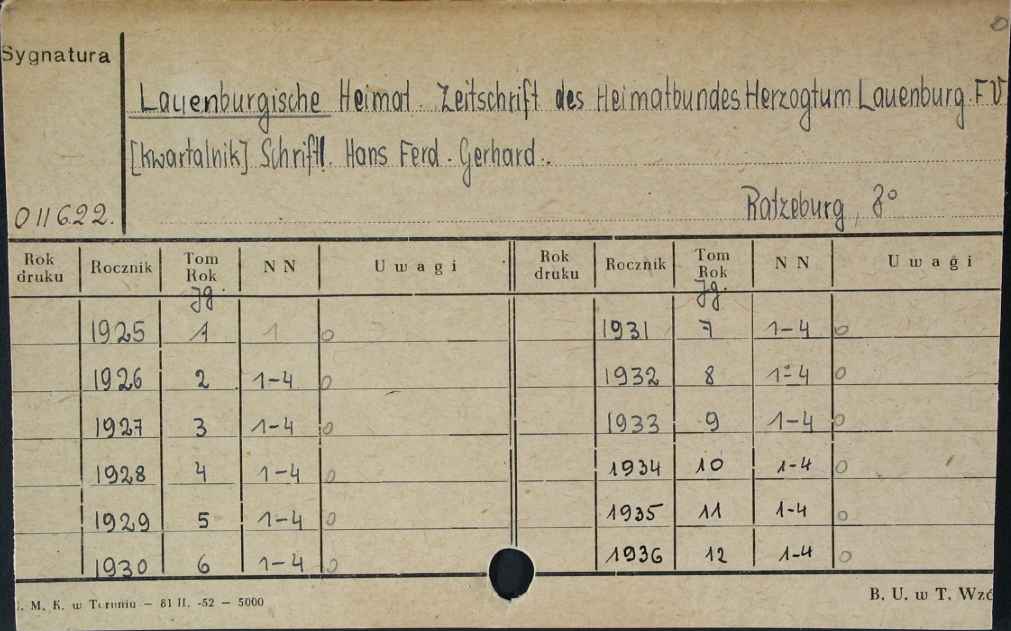 Sygnatura
Lauenburgische Heimat. Zeitschrift des Heimatbundes Herzogtum Lauenburg. F V
[kwartalnik] Schriftl. Hans Ferd. Gerhard.
011622.
Ratzeburg, 8°
Rok druku Rocznik Tom Rok NN Uwagi Rok druku Rocznik Tom Rok NN Uwagi
Jg. Jg.
1925 1 1 0 1931 7 1-4 0
1926 2 1-4 0 1932 8 1-4 0
1927 3 1-4 0 1933 9 1-4 0
1928 4 1-4 0 1934 10 1-4 0
1929 5 1-4 0 1935 11 1-4 0
1930 6 1-4 0 1936 12 1-4 0
. M. K. w Toruniu — 81 II. -52 — 5000
B. U. w T. Wzó